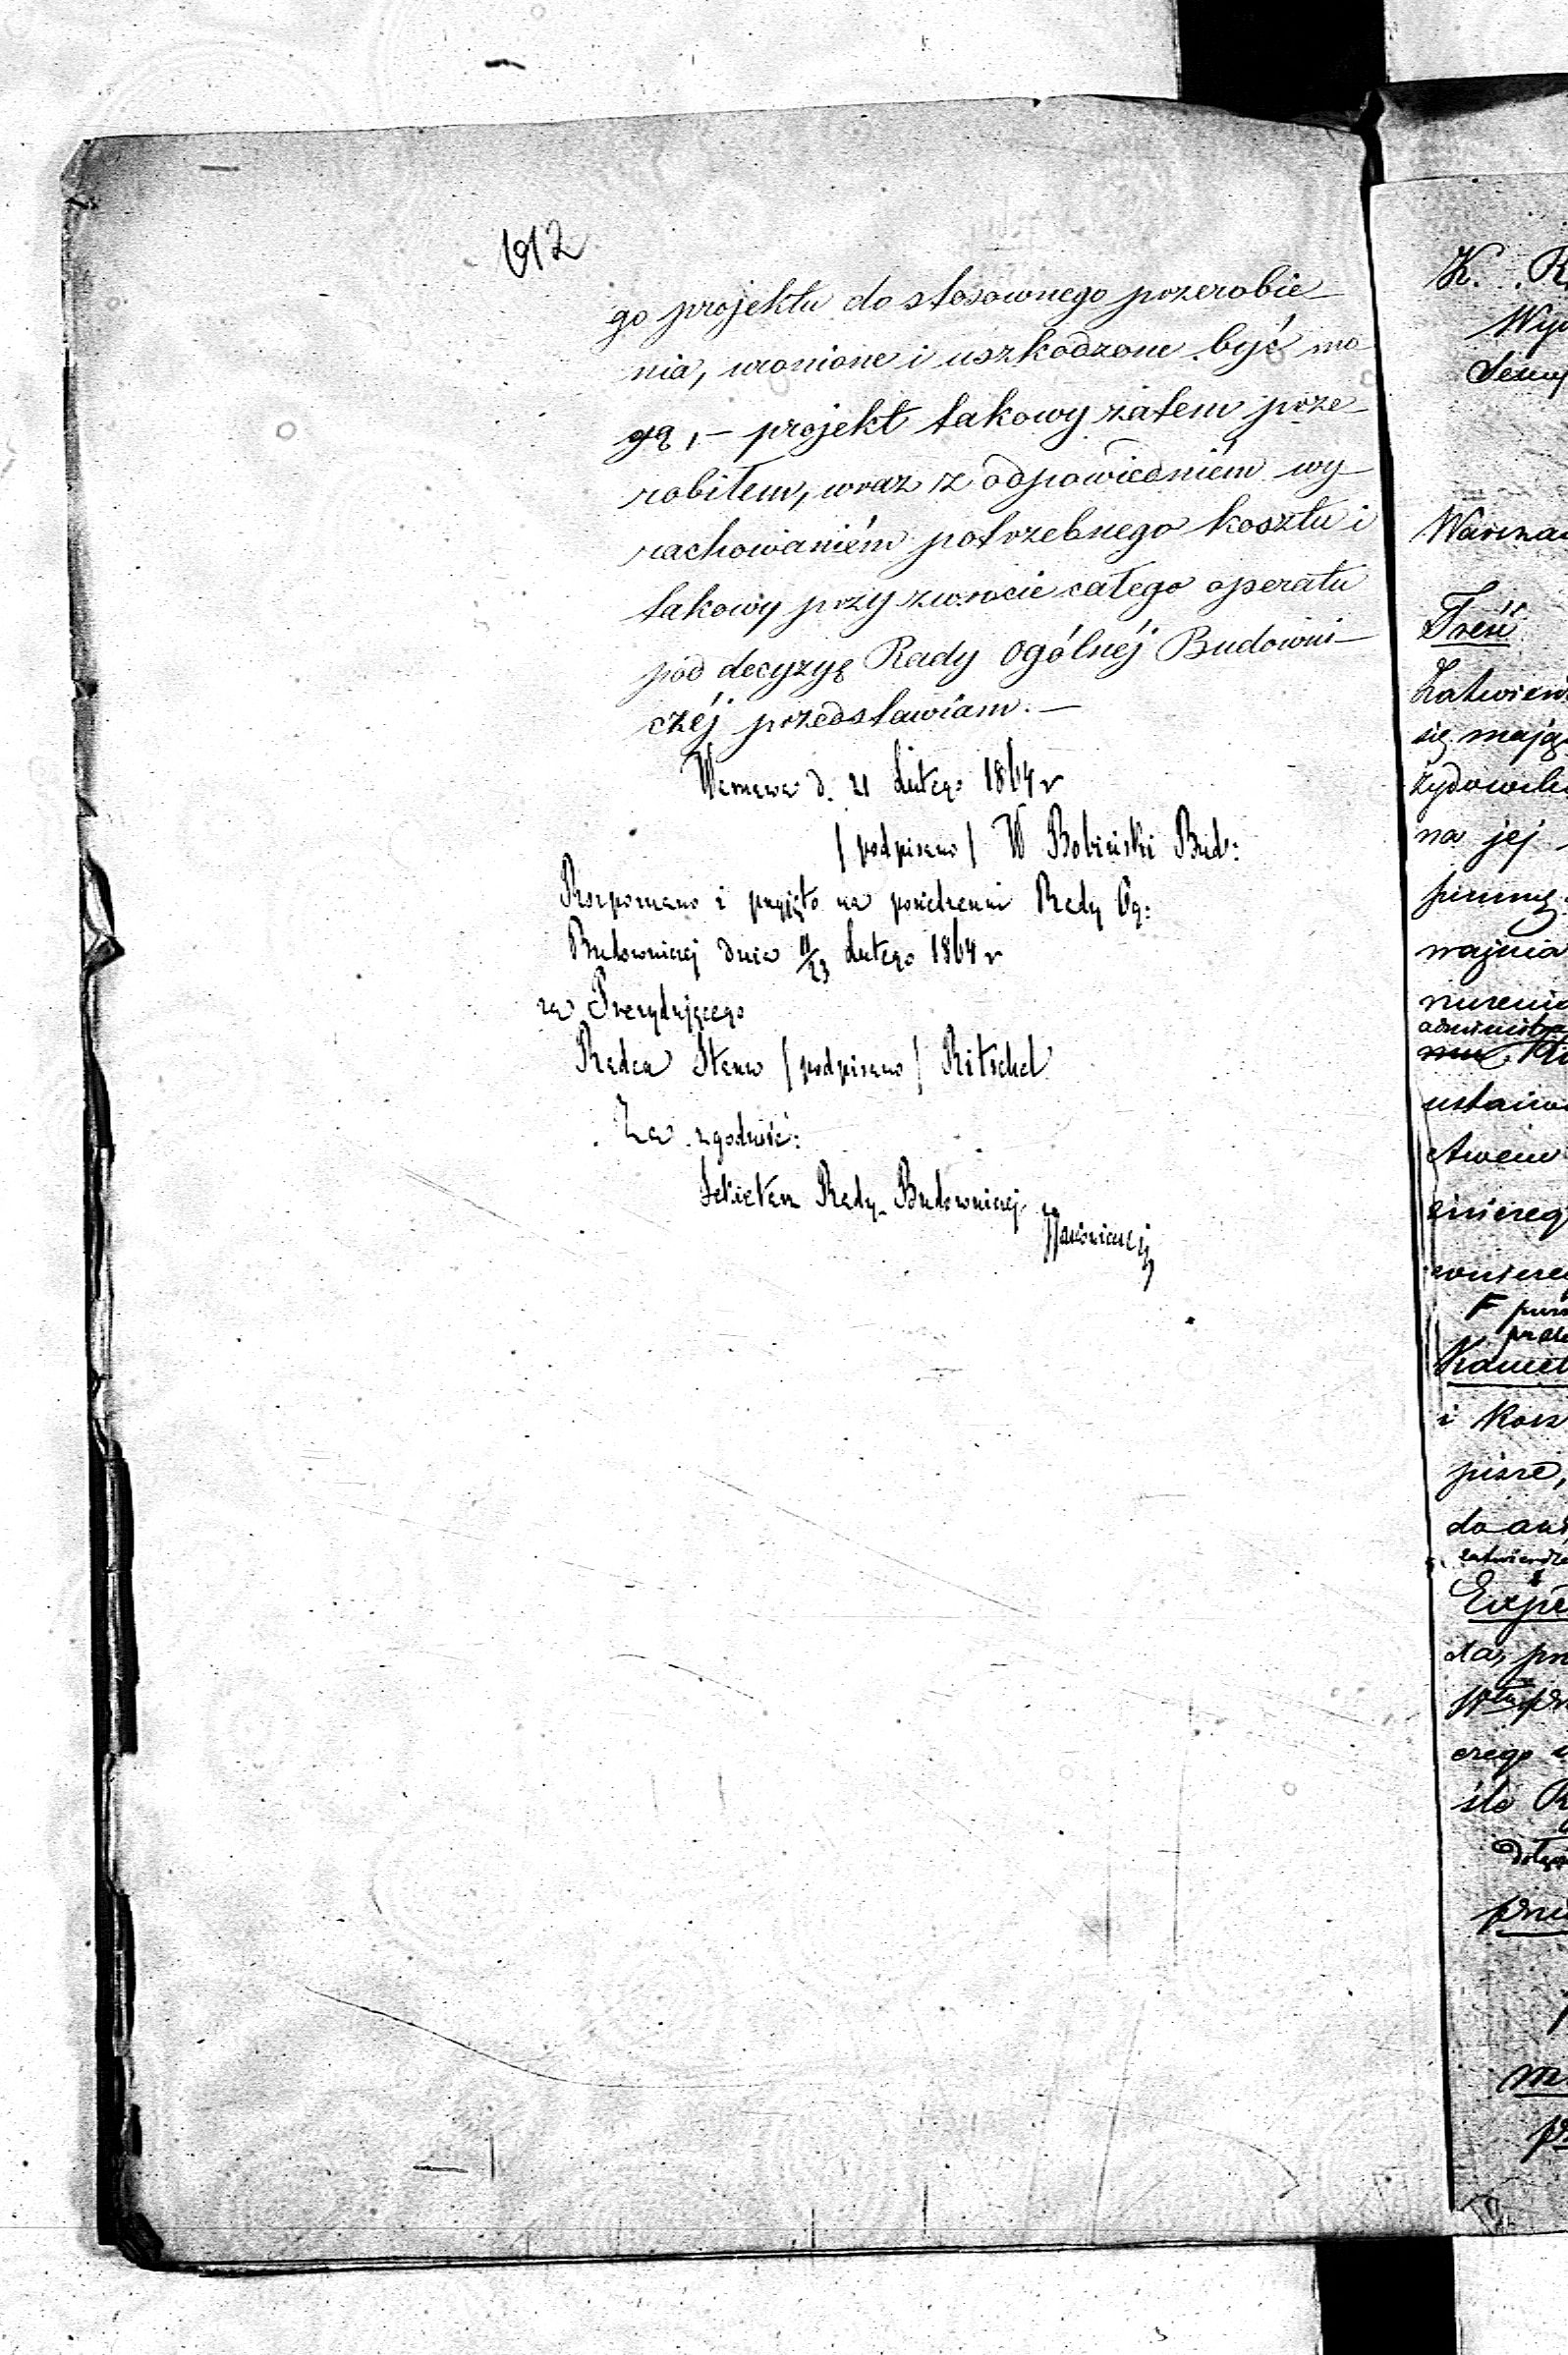 612
go projektu do stosownego przerobie-
nia, uronione i uszkodzone być mo-
gą,- projekt takowy zatem prze-
robiłem, wraz z odpowiedniém wy-
rachowaniém potrzebnego kosztu i
takowy przy zwrocie całego operatu
pod decyzyę Rady Ogólnéj Budowni-
czéj przedstawiam.-
Warszawa d. 21 Lutego 1864 r
/podpisano/ W Bobiński Bud:
Rozpoznano i przyjęto na posiedzeniu Rady Og:
Budowniczej dnia 11/23 Lutego 1864 r
za Prezydującego
Radca Stanu /podpisano/ Ritschel
Za zgodność:
Sekretarz Rady Budowniczej
K. R
Wy
Treść
Zatwierd
się mają
żydowsk
na jej
nia
ustano
i Kosz
pisze,
do
zatwierdze
Expe
czego